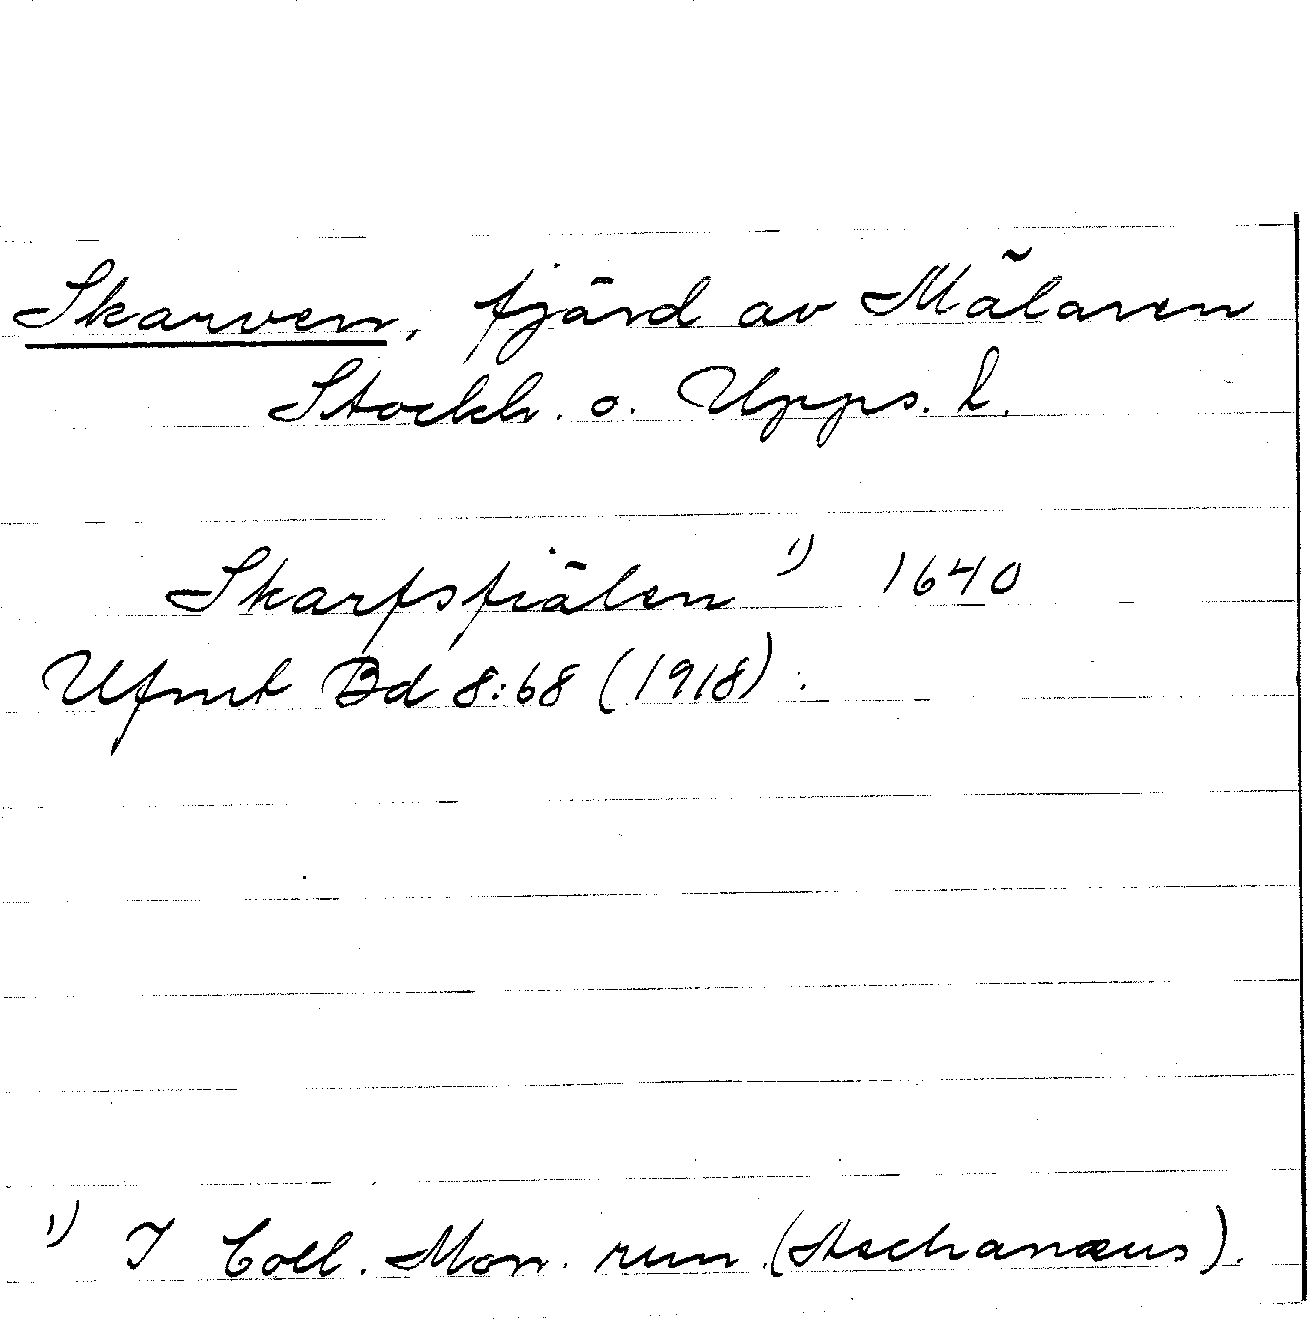 Skarven, fjärd av Mälaren
Stockh. o. Upps. l.
Skarfsfiälen ¹⁾ 1640
Ufmt Bd 8:68 (1918).
¹⁾ I Coll. Mon. run. (Stechanæus).